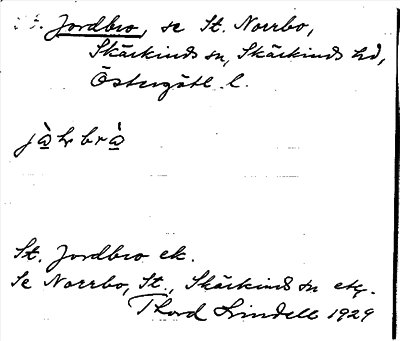 St. Jordbro, se St. Norrbo,
Skärkinds sn, Skärkinds hd,
Östergötl. l.
jà̱hrbrà̱
St. Jordbro ek.
Se Norrbo, St., Skärkinds sn etc.
Thord Lindell 1929